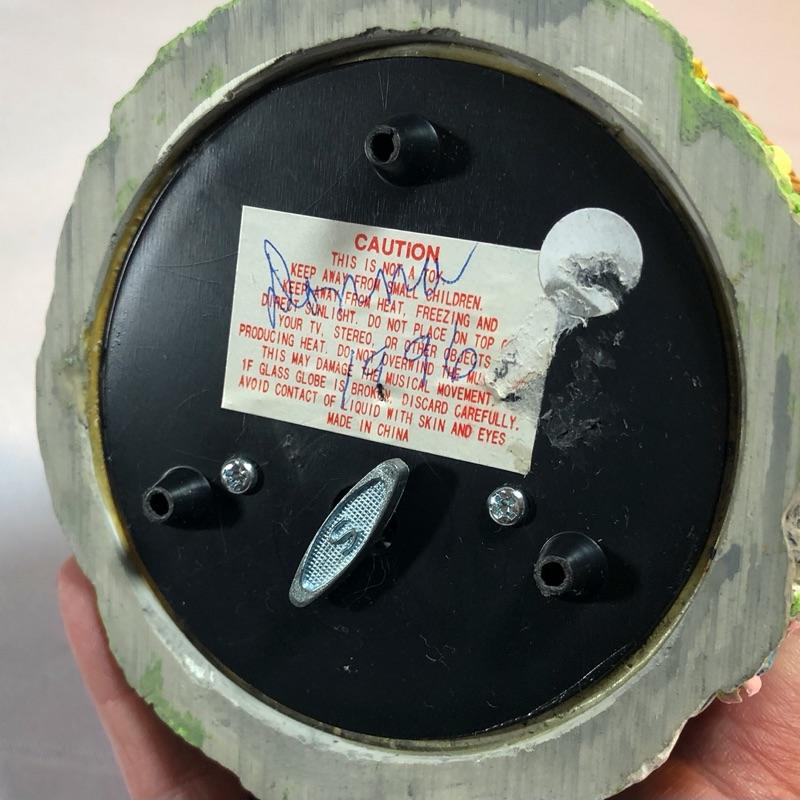 CAUTION
THIS IS NOT A TOY
KEEP AWAY FROM SMALL CHILDREN.
KEEP AWAY FROM HEAT, FREEZING AND
DIRECT SUNLIGHT. DO NOT PLACE ON TOP
YOUR TV, STEREO, OR OTHER OBJECTS
PRODUCING HEAT. DO NOT OVERWIND THE
THIS MAY DAMAGE THE MUSICAL MOVEMENT.
1F GLASS GLOBE IS BROKEN, DISCARD CAREFULLY.
AVOID CONTACT OF LIQUID WITH SKIN AND EYES
MADE IN CHINA
Donna
1996
S